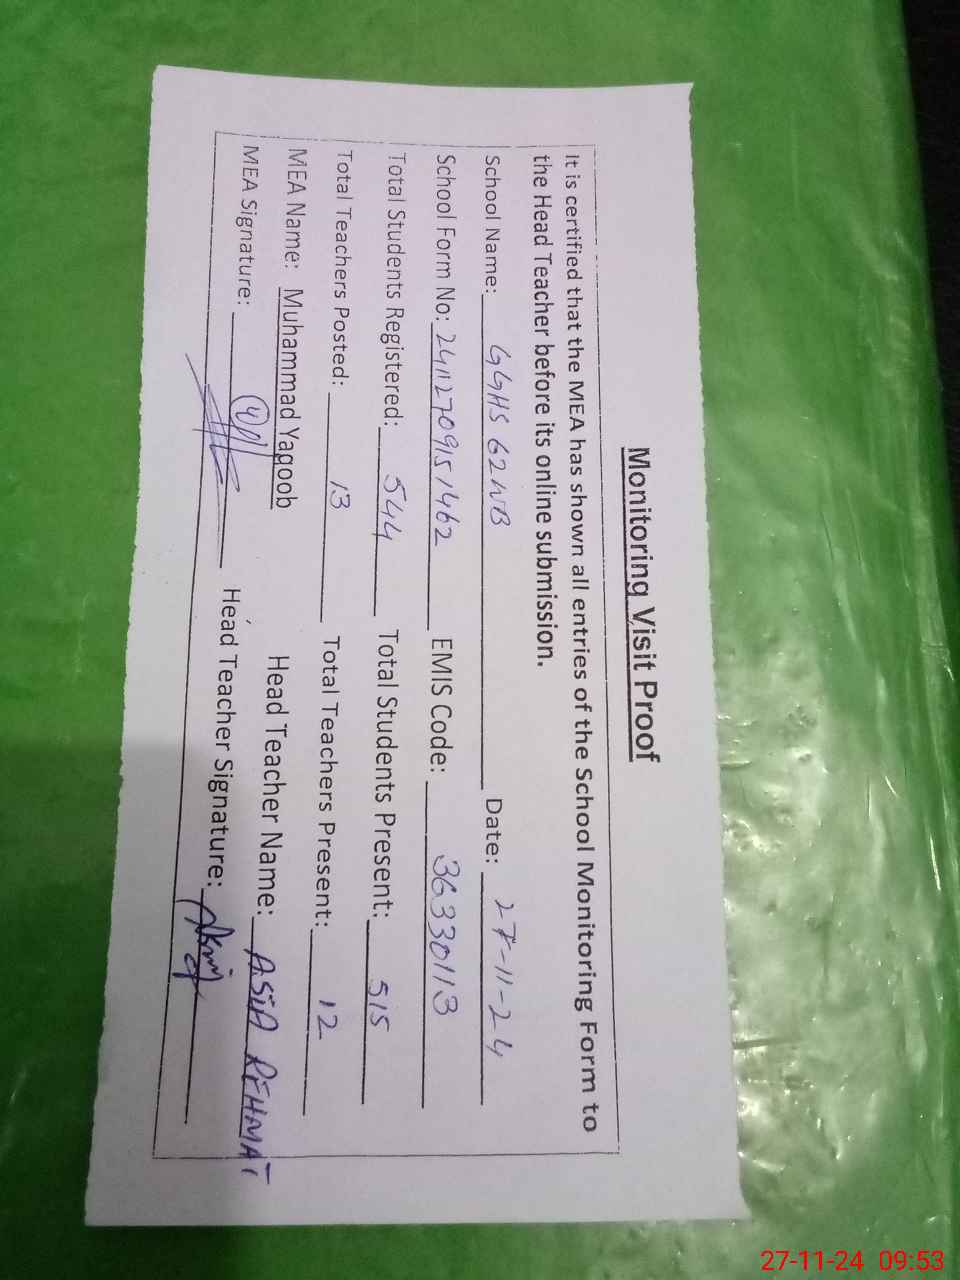 Monitoring Visit Proof
It is certified that the MEA has shown all entries of the School Monitoring Form to
the Head Teacher before its online submission.
School Name: GGHS 62WB Date: 27-11-24
School Form No: 24112709151462 EMIS Code: 36330113
Total Students Registered: 544 Total Students Present: 515
Total Teachers Posted: 13 Total Teachers Present: 12
MEA Name: Muhammad Yaqoob Head Teacher Name: ASIA REHMAT
MEA Signature: Head Teacher Signature:
27-11-24 09:53